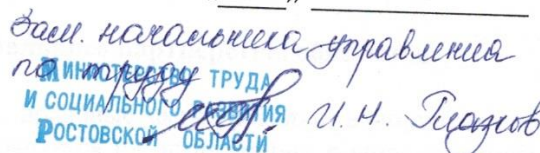 Зам. начальника управления
по труду
МИНИСТЕРСТВО ТРУДА
И СОЦИАЛЬНОГО РАЗВИТИЯ
РОСТОВСКОЙ ОБЛАСТИ
И. Н. Глазков